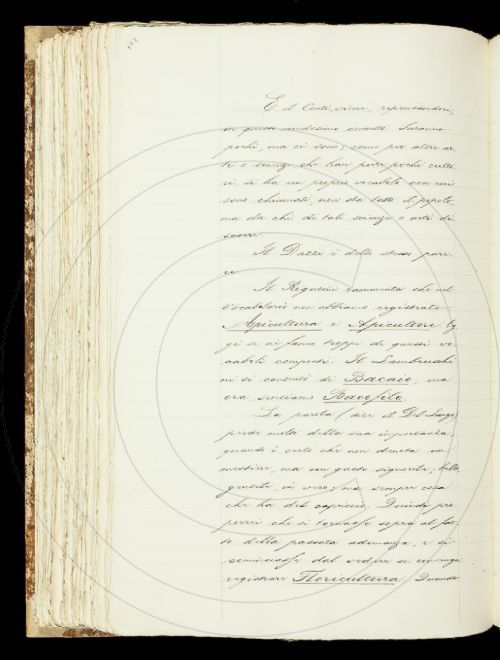 E il Conti, viene, riprendendo,
in questo medesimo concetto. Saranno
pochi, ma ci sono; come per altre ar-
ti e scienze, che han pure pochi culto-
ri, si ha un proprio vocabolo con cui
sono chiamati, non da tutto il popolo,
ma da chi di tali scienze e arti di-
scorre.
Il Dazzi è dello stesso pare-
re.
Il Rigutini rammenta che nel
Vocabolario non abbiamo registrato
Apicultura e Apicultori. Og-
gi se ne fanno troppi di questi vo-
caboli composti. Il Lambruschi-
ni si contentò di Bacaio, ma
ora sentiamo Bacofilo.
La parola (dice il Del Lungo)
perde molto della sua importanza,
quando è certo che non denota un
mestiere, ma un gusto signorile; bella
qualità in vero, ma sempre cosa
che ha del capriccio. Quindi pro-
porrei che si tornasse sopra al fat-
to della passata adunanza, e si
cominciasse dal vedere se convenga
registrare Floricultura. Quando